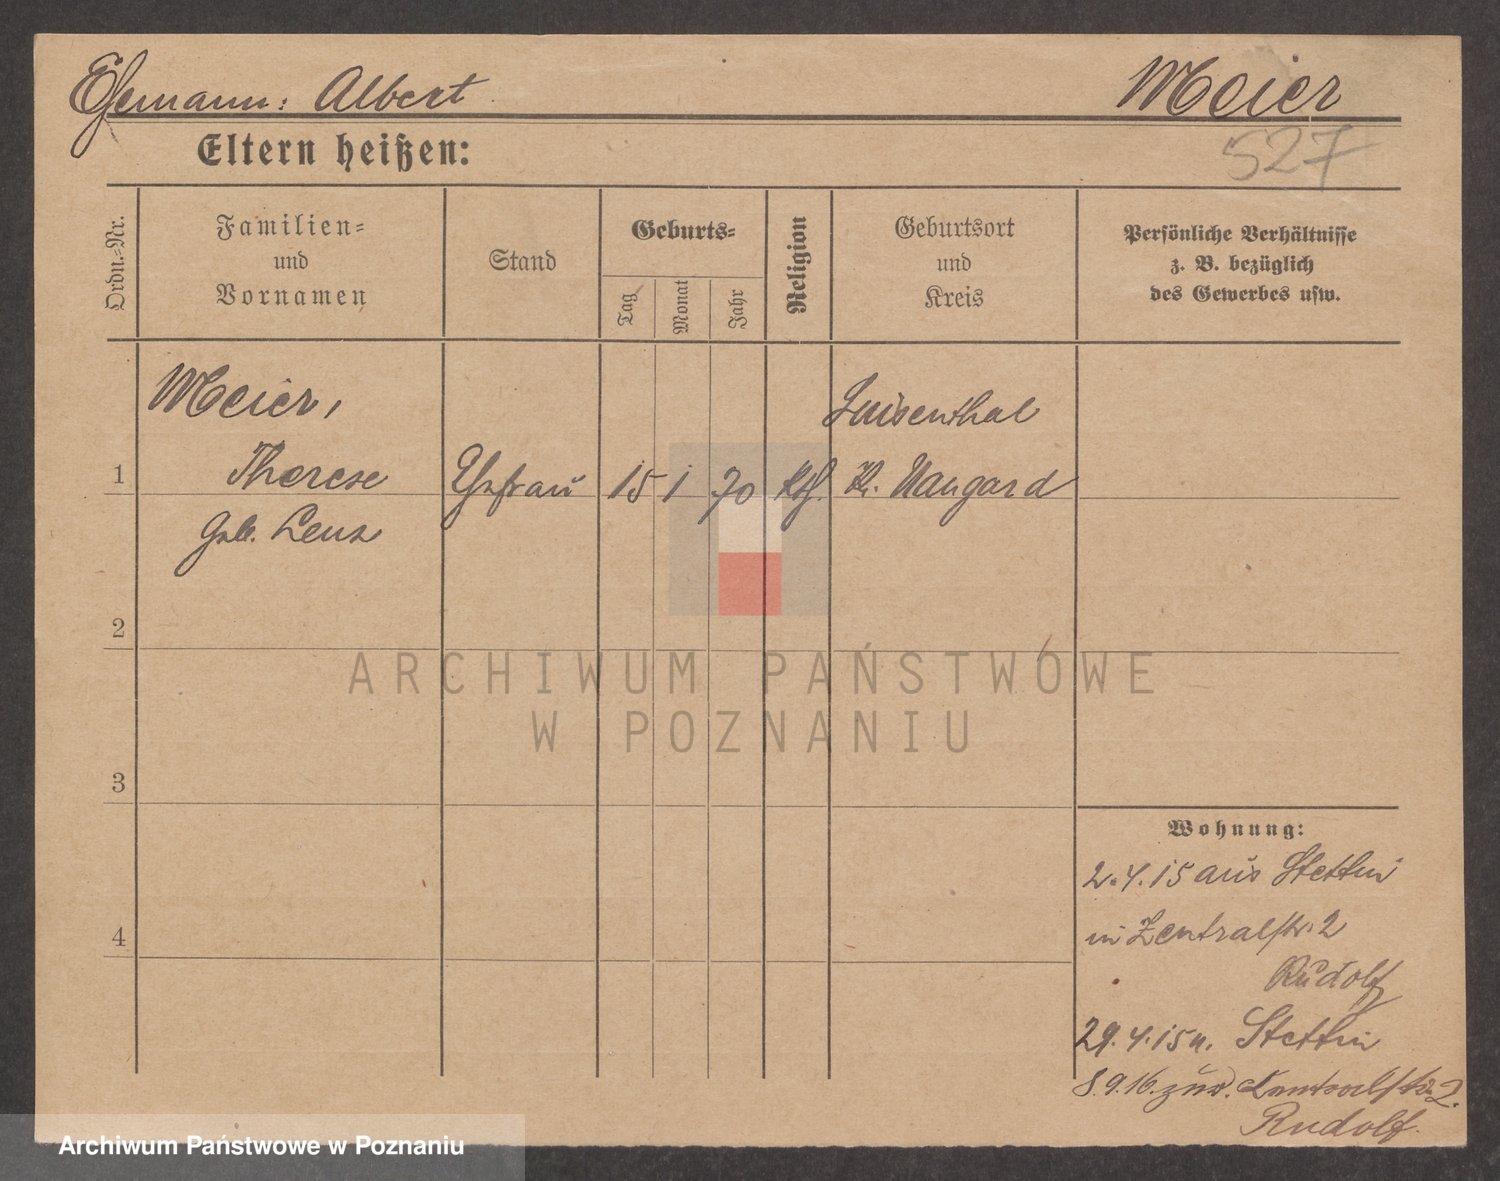 Ehemann: Albert Meier
527
Eltern heißen:
Ordn.-Nr.
Familien-
und
Vornamen
Stand
Geburts-
Tag
Monat
Jahr
Religion
Geburtsort
und
Kreis
Persönliche Verhältnisse
z. B. bezüglich
des Gewerbes usw.
Meier,
Luisenthal
1 Therese Ehefrau 15 1 70 Kr. Naugard
geb. Lenz
2
3
4
Wohnung:
2.4.15 aus Stettin
in Zentralstr. 2
Rudolf
29.4.15 n. Stettin
8.9.16. zur. Zentralstr. 2.
Rudolf.
ARCHIWUM PAŃSTWOWE
W POZNANIU
Archiwum Państwowe w Poznaniu